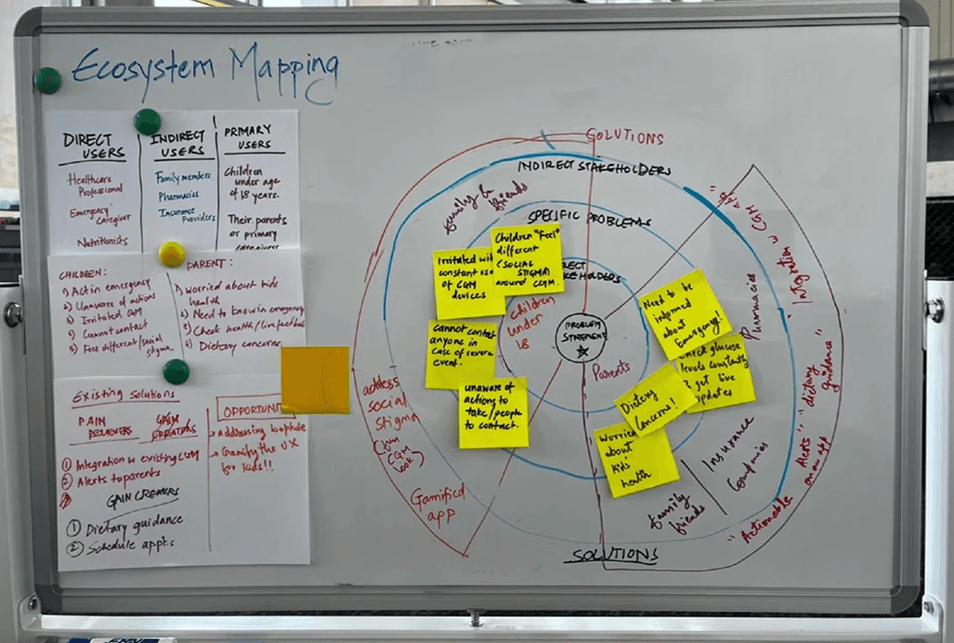 Ecosystem Mapping
DIRECT
USERS
Healthcare
Professional
Emergency
Caregiver
Nutritionists
INDIRECT
USERS
Family members
Pharmacies
Insurance
Providers
PRIMARY
USERS
Children
under age
of 18 years.
Their parents
or primary
CHILDREN:
1) Act in emergency
2) Unaware of actions
3) Irritated CGM
4) Cannot contact
5) Feel different/social
stigma.
PARENT:
1) Worried about kids
health
2) Need to know in emergency
3) Check health/
4) Dietary concerns
Existing Solutions
PAIN
RELIEVERS
GAIN
CREATORS
① Integration w existing CGM
② Alerts to parents
GAIN CREATORS
① Dietary guidance
② Schedule appts
OPPORTUN
Gamify the UX
for kids!!
SOLUTIONS
INDIRECT STAKEHOLDERS
family &
friends
SPECIFIC PROBLEMS
Irritated wi
constant us
of CGM
devices
Children "Feel"
different
(SOCIAL
STIGMA)
around CGM.
cannot contact
anyone in
case of severe
event.
unaware of
actions to
take/people
to contact.
children
under
18
PROBLEM
STATEMENT
Parents
Need to be
informed
about
Emergency!
glucose
levels constantly
& get live
updates
Dietary
Concerns!
Worried
about
kids'
health
Pharmacies
Insurance
Companies
family
friends
address
social
stigma
CGM
look)
Gamified
app
"Integration w CGM app"
"dietary
guidance"
"Actionable Alerts"
on an app
SOLUTIONS